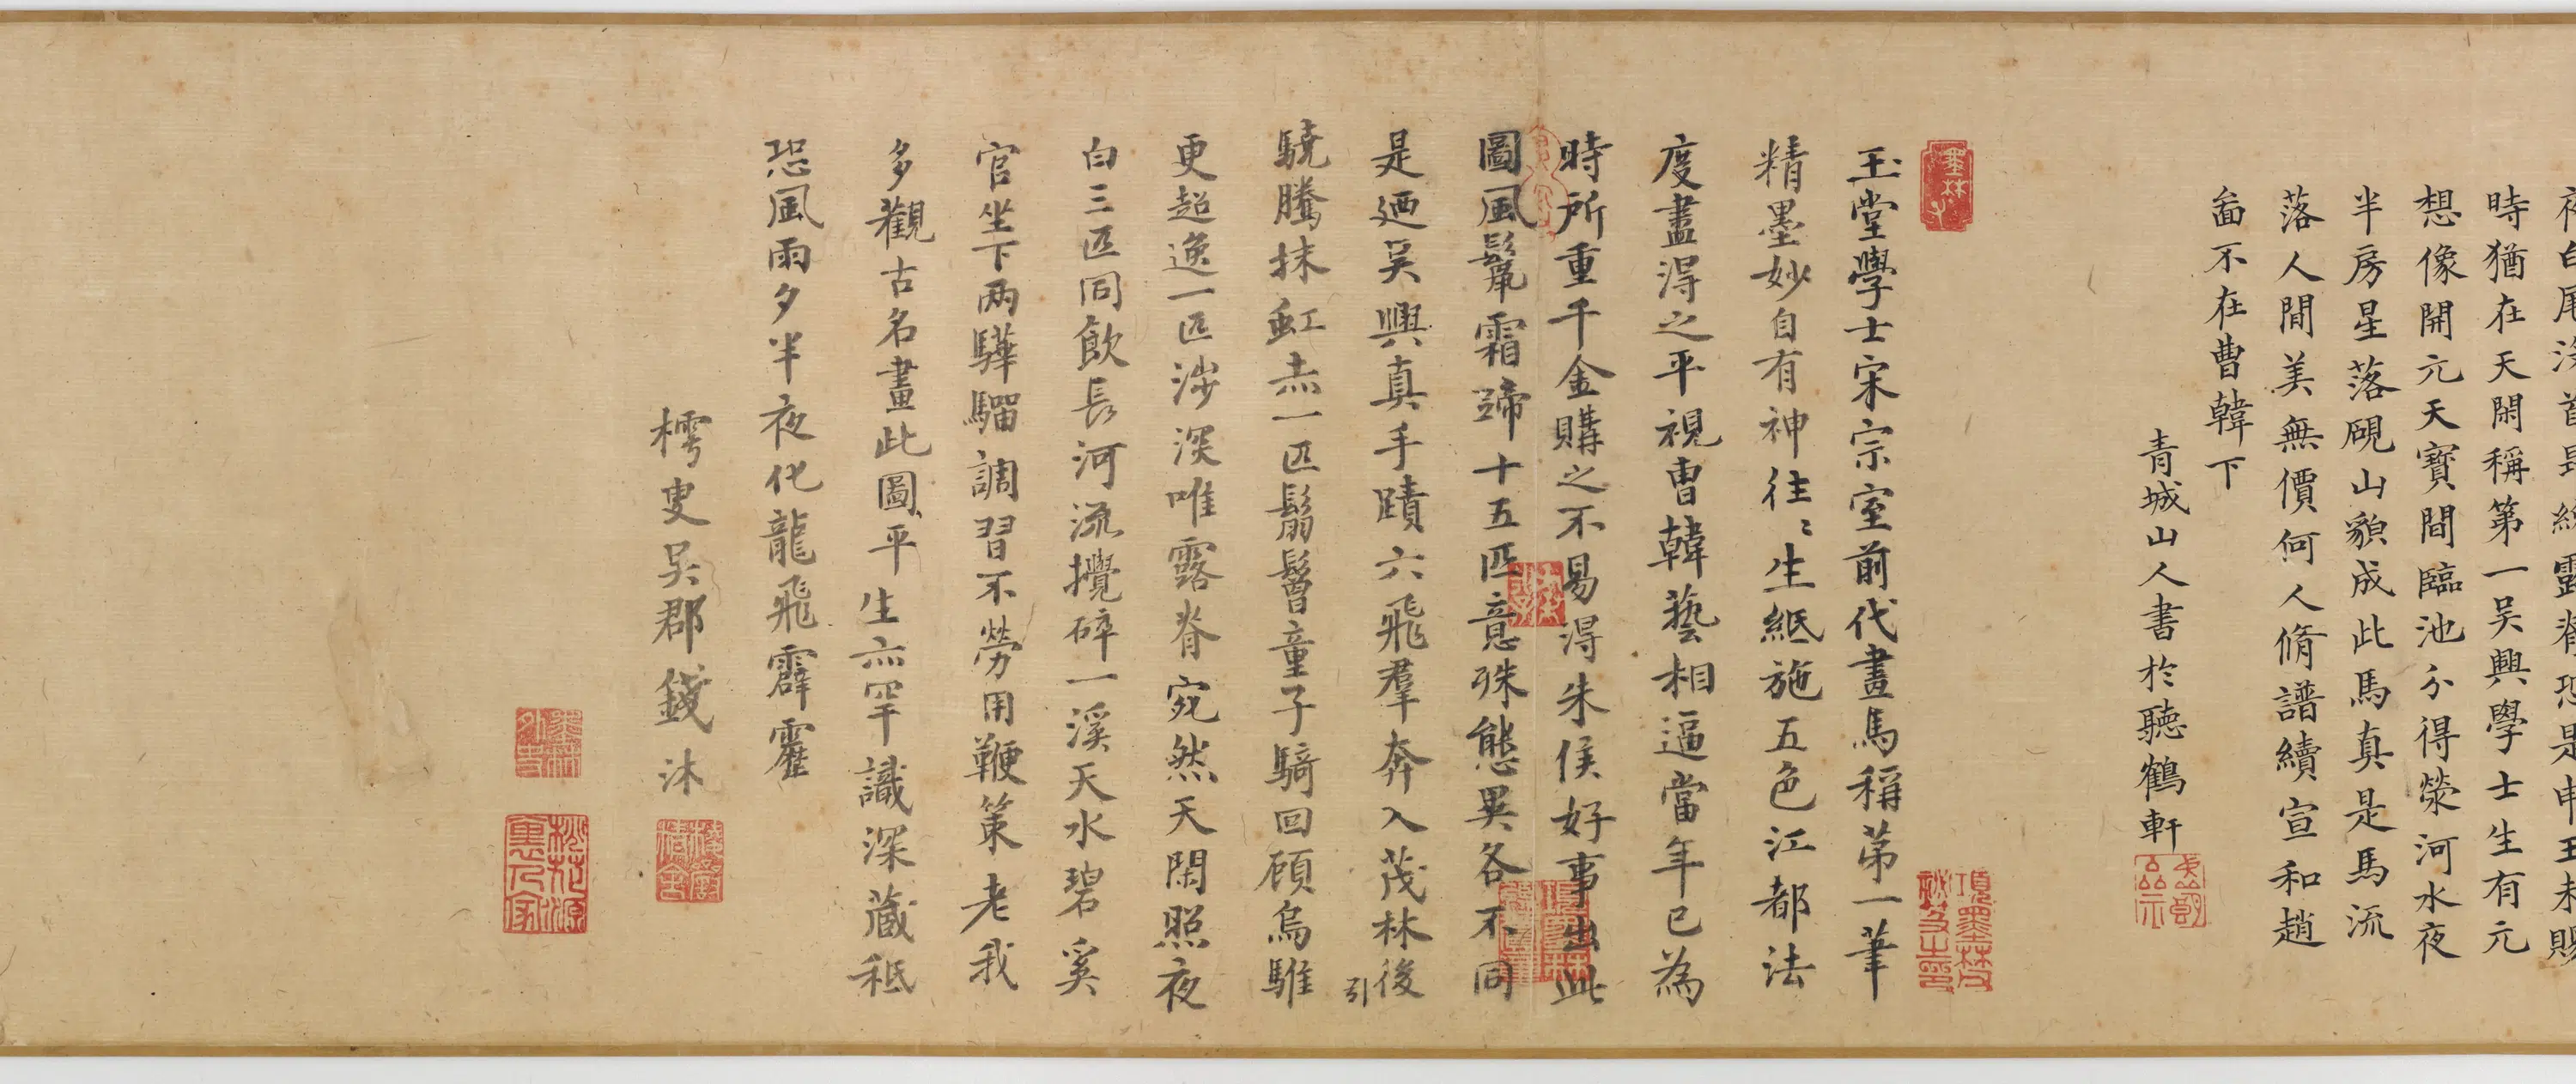 夜白尾沒首
時猶在天閑稱第一吳興學士生有元
想像開元天寶間臨池分得滎河水夜
半房星落硯山貌成此馬真是馬流
落人間美無價何人脩譜續宣和趙
畫不在曹韓下
青城山人書於聽鶴軒
墨林
項墨林父秘笈之印
玉堂學士宋宗室前代畫馬稱苐一筆
精墨妙自有神往〻生紙施五色江都法
度盡得之平視曹韓藝相逼當年已為
時所重千金購之不易得朱侯好事出此
圖風鬃霜蹄十五匹意殊態異各不同
是廼吳興真手蹟六飛羣奔入茂林後
引
驍騰抹虹赤一匹鬅鬙童子騎回顧烏騅
更超逸一匹涉深唯露脊宛然天閑照夜
白三匹同飲長河流攪碎一溪天水碧奚
官坐下两驊騮調習不勞用鞭策老我
多觀古名畫此圖平生亦罕識深藏秖
恐風雨夕半夜化龍飛霹靂
樗叟吳郡錢沐
桃花源裏人家